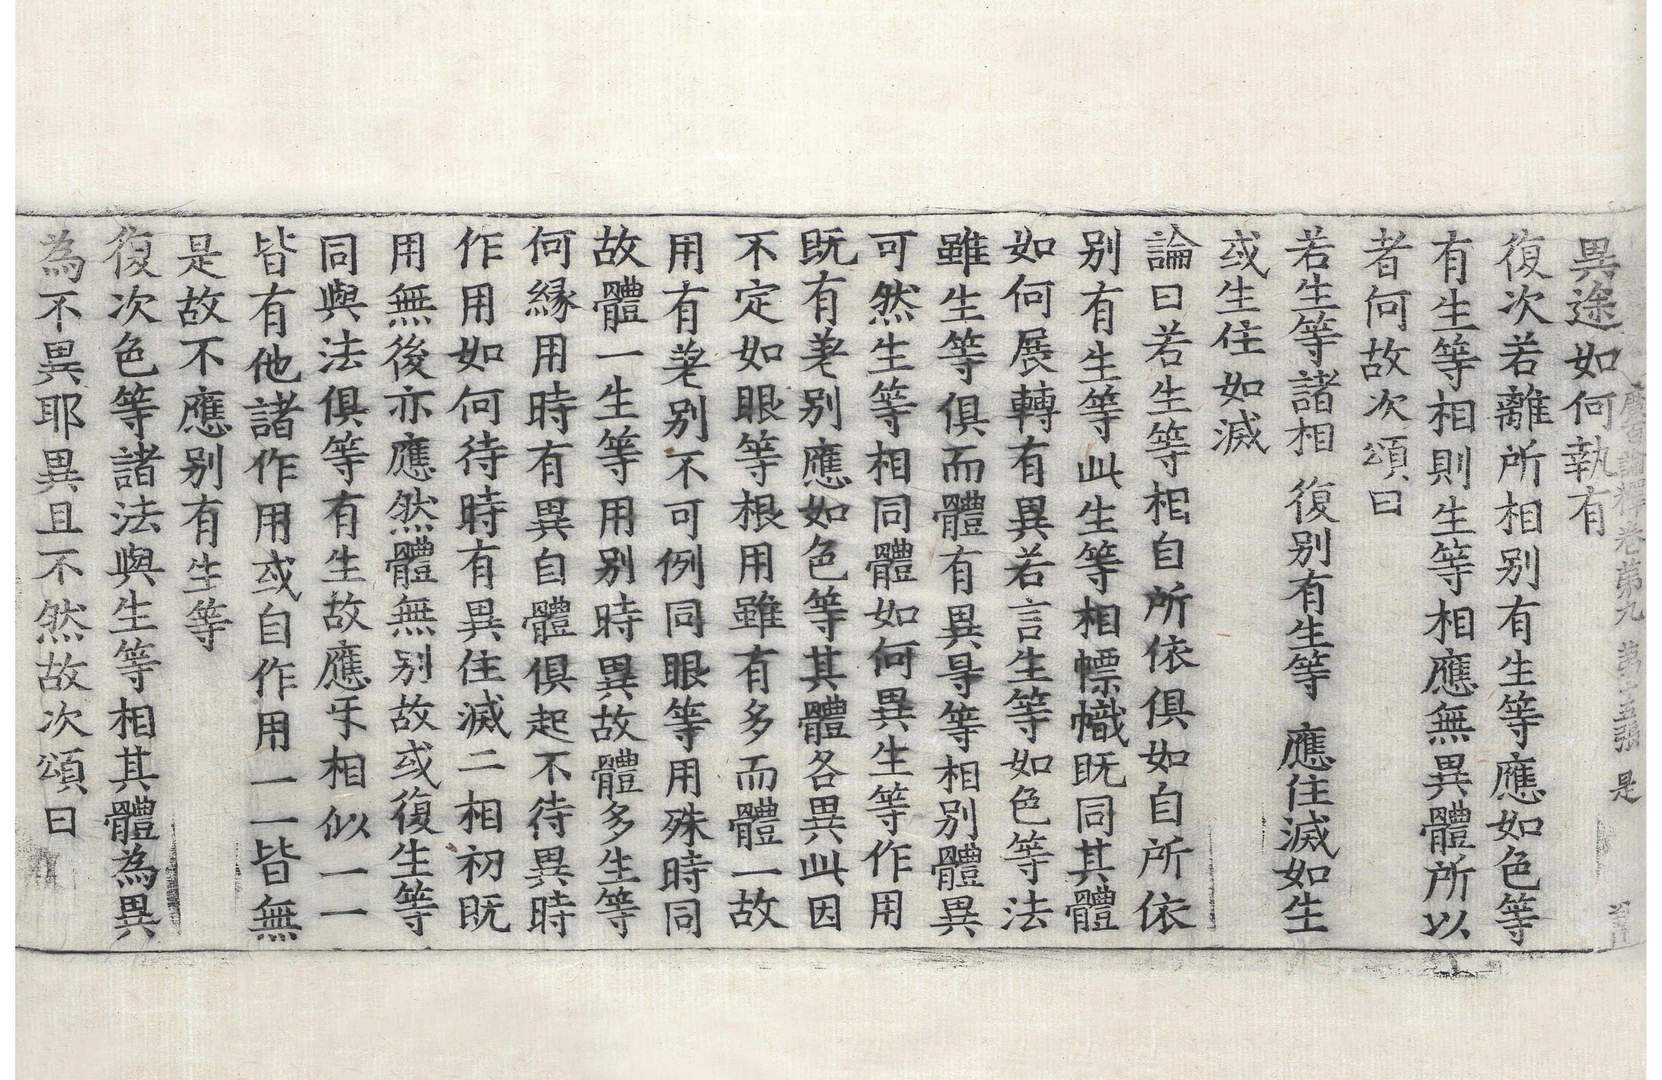 廣百論釋卷第九 第二五張 是
異途如何執有
復次若離所相別有生等應如色等
有生等相則生等相應無異體所以
者何故次頌曰
若生等諸相 復別有生等 應住滅如生
或生住如滅
論曰若生等相自所依俱如自所依
別有生等此生等相幖幟既同其體
如何展轉有異若言生等如色等法
雖生等俱而體有異㝵等相別體異
可然生等相同體如何異生等作用
既有差別應如色等其體各異此因
不定如眼等根用雖有多而體一故
用有差別不可例同眼等用殊時同
故體一生等用別時異故體多生等
何緣用時有異自體俱起不待異時
作用如何待時有異住滅二相初既
用無後亦應然體無別故或復生等
同與法俱等有生故應乐相似一一
皆有他諸作用或自作用一一皆無
是故不應別有生等
復次色等諸法與生等相其體為異
為不異耶異且不然故次頌曰